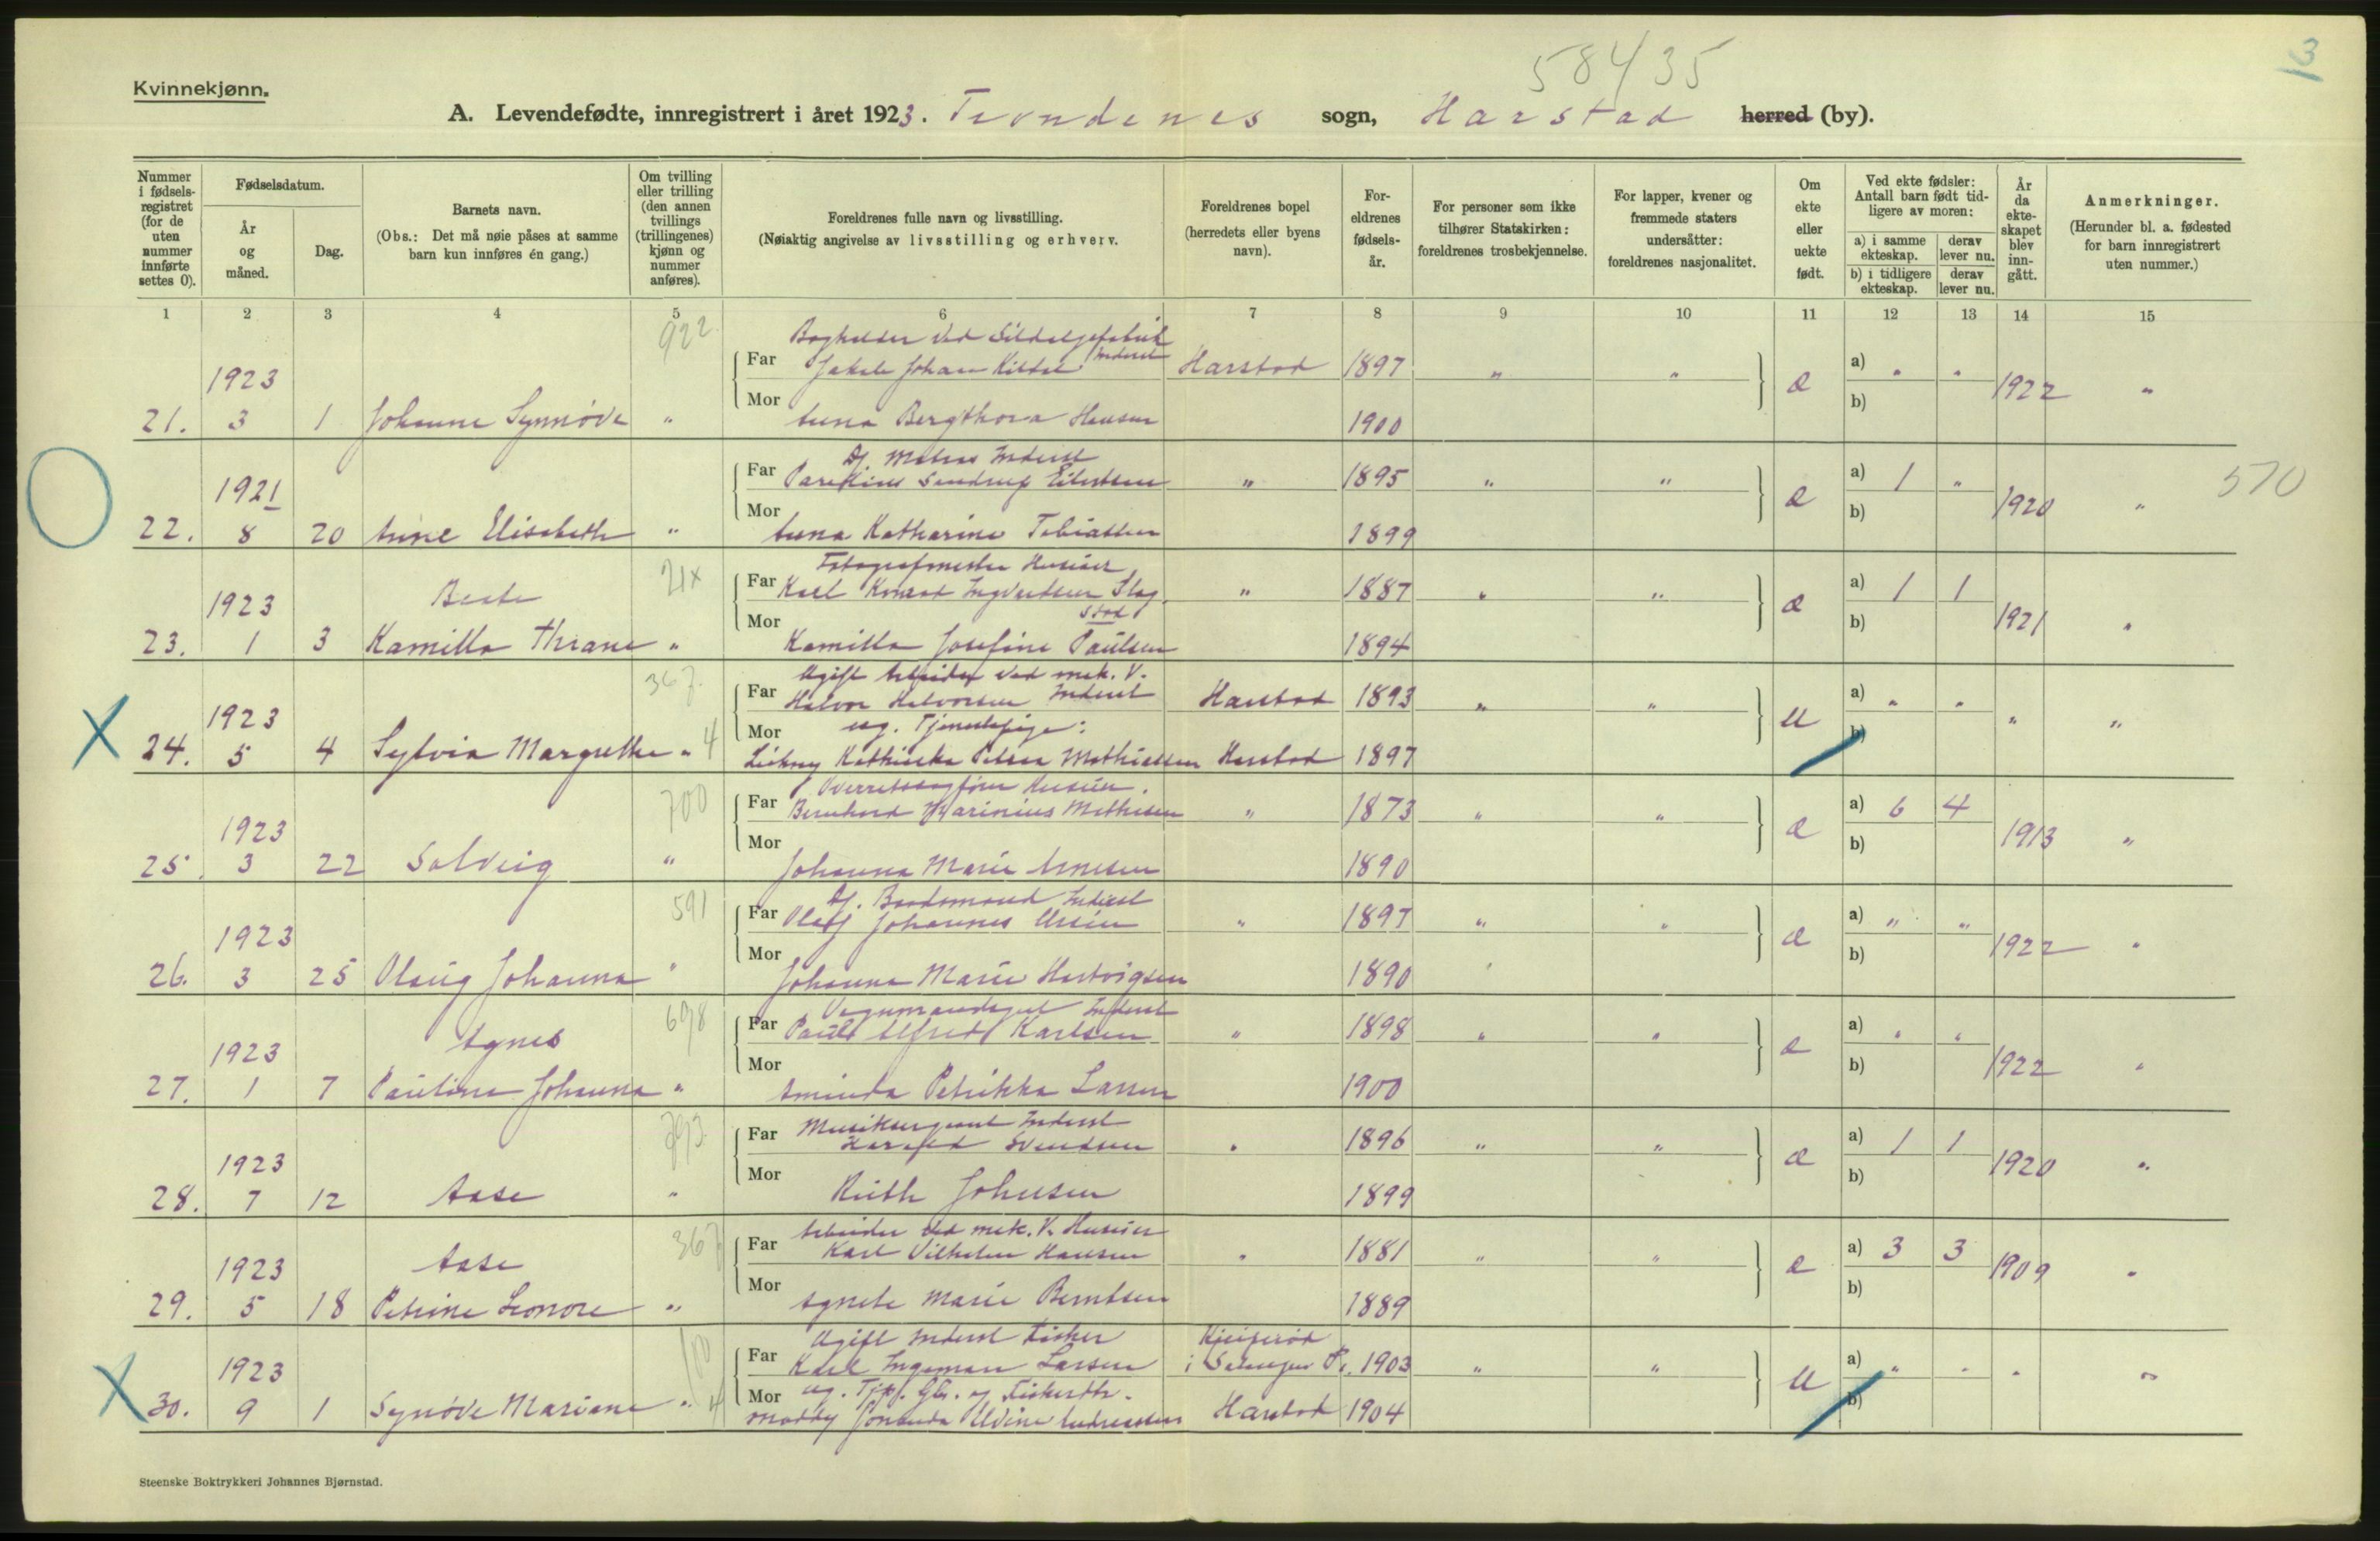 584/35
3
Kvinnekjønn.
A. Levendefødte, innregistrert i året 1923. Trondenes sogn, Harstad herred (by).
Nummer i fødsels-registret (for de uten nummer innførte settes 0).
Fødselsdatum.
År og måned.
Dag.
Barnets navn.
(Obs.: Det må nøie påses at samme barn kun innføres én gang.)
Om tvilling eller trilling (den annen tvillings (trillingenes) kjønn og nummer anføres).
Foreldrenes fulle navn og livsstilling.
(Nøiaktig angivelse av livsstilling og erhverv.
Foreldrenes bopel (herredets eller byens navn).
For-eldrenes fødsels-år.
For personer som ikke tilhører Statskirken: foreldrenes trosbekjennelse.
For lapper, kvener og fremmede staters undersåtter: foreldrenes nasjonalitet.
Om ekte eller uekte født.
Ved ekte fødsler: Antall barn født tidligere av moren:
a) i samme ekteskap.
derav lever nu.
b) i tidligere ekteskap.
derav lever nu.
År da ekte-skapet blev inn-gått.
Anmerkninger.
(Herunder bl. a. fødested for barn innregistrert uten nummer.)
1 2 3 4 5 6 7 8 9 10 11 12 13 14 15
922
Bogholder ved Sildoljefabrik
1923 Far Jakob Johan Kildal Inderst Harstad 1897 " " æ a) " " 1922 "
21. 3 1 Johanne Synnøve " Mor Anna Bergthora Hansen 1900 b)
Matros Inderst
1921 Far Eilertsen " 1895 " " æ a) 1 " 1920 " 570
22. 8 20 Anne Elisabeth " Mor Anna Katharine Tobiassen 1899 b)
21x
Fotografmester Huseier
1923 Beate Far Karl Konrad Ingvartsen Slog " 1887 " " æ a) 1 1 1921 "
stad
23. 1 3 Kamilla Thrane " Mor Kamilla Josefine Paulsen 1894 b)
367.
Ugift Arbeider ved mek. V.
1923 Far Halvor Halvorsen Inderst Harstad 1893 " " U a) " " " "
ug. Tjenestepige:
24. 5 4 Sylvia Margrethe " 4 Mor Petrea Mathiassen Harstad 1897 b)
700
Overretssagfører Huseier.
1923 Far Bernhard Marinius Mathisen " 1873 " " æ a) 6 4 1913 "
25. 3 22 Solveig " Mor Johanna Marie Arnesen 1890 b)
591
Inderst
1923 Far Olaf Johannes " 1897 " " æ a) " " 1922 "
26. 3 25 Olaug Johanna " Mor Johanna Marie Hartvigsen 1890 b)
698
Inderst
1923 Agnes Far Paul Alfred Karlsen " 1898 " " æ a) " " 1922 "
27. 1 7 Pauline Johanna " Mor Aminda Petrikka Larsen 1900 b)
Musiksergeant Inderst
1923 Far Harald Svendsen " 1896 " " æ a) 1 1 1920 "
28. 7 12 Aase " Mor Ruth Johnsen 1899 b)
367
Arbeider ved mek. V. Huseier
1923 Aase Far Karl Vilhelm Hansen " 1881 " " æ a) 3 3 1909 "
29. 5 18 Petrine Leonore " Mor Agnete Marie Berntsen 1889 b)
100
Ugift Inderst Fisker
1923 Far Karl Ingeman Larsen i Salangen P. 1903 " " U a) " " " "
30. 9 1 Synøve Mariane " 4 Mor ug. Harstad 1904 b)
Steenske Boktrykkeri Johannes Bjørnstad.